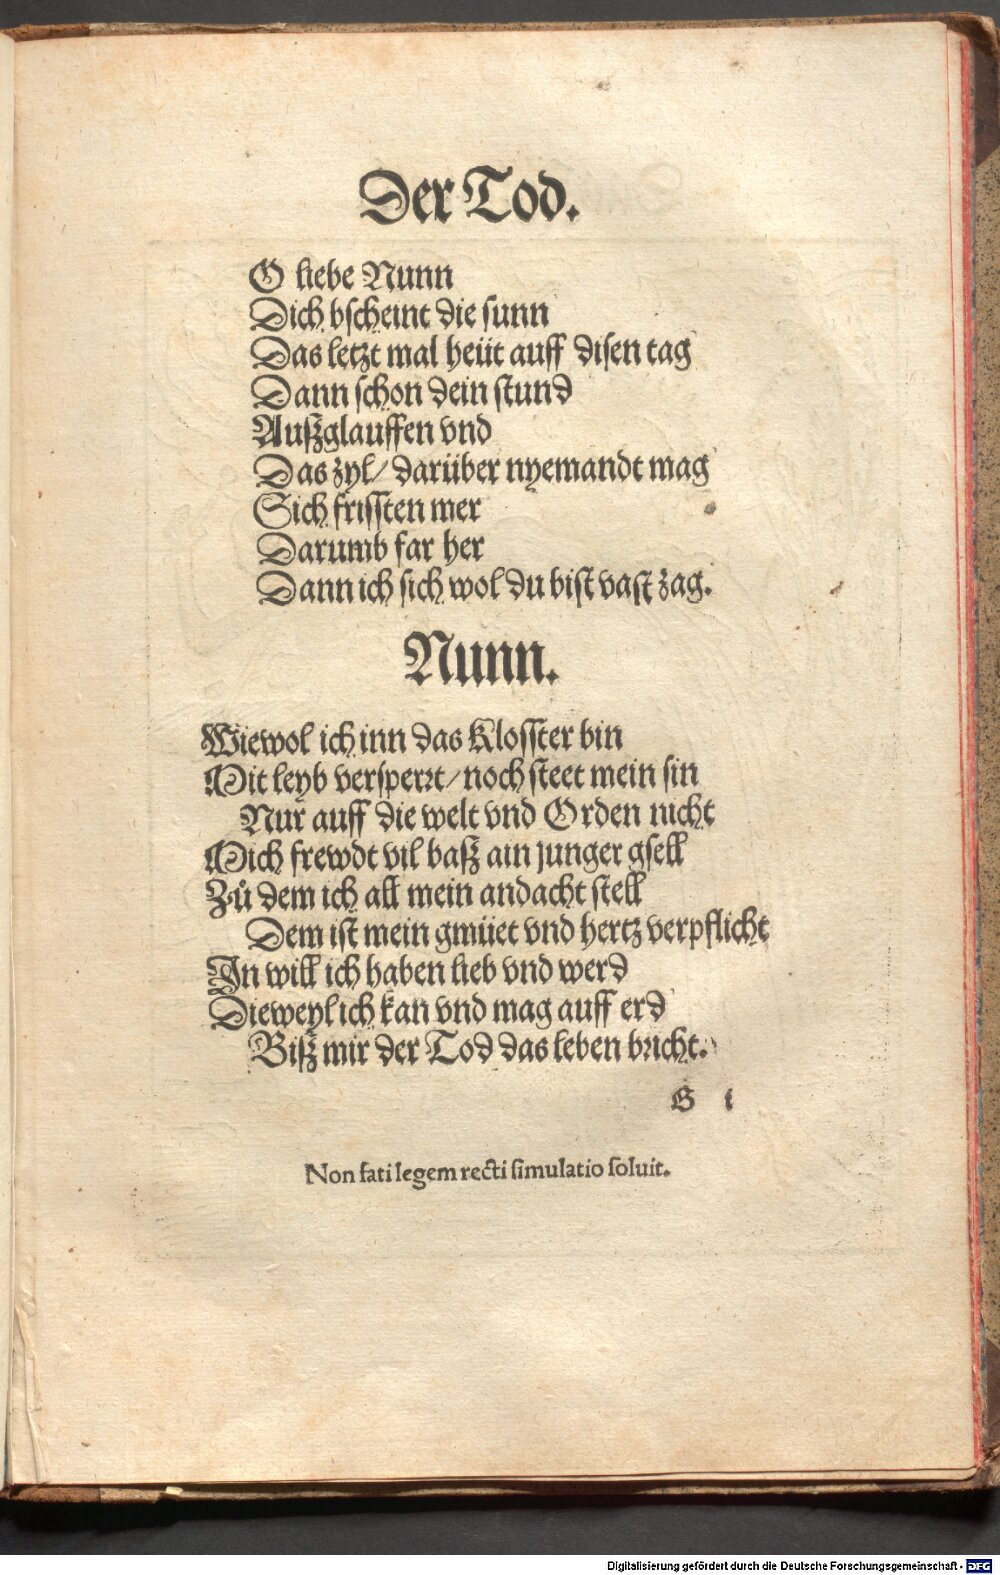 Der Tod.
O liebe Nunn
Dich bscheint die sunn
Das letzt mal heüt auff disen tag
Dann schon dein stund
Außglauffen vnd
Das zyl/ darüber nyemandt mag
Sich frissten mer
Darumb far her
Dann ich sich wol du bist vast zag.
Nunn.
Wiewol ich inn das Klosster bin
Mit leyb versperrt/ noch steet mein sin
Nur auff die welt vnd Orden nicht
Mich frewdt vil baß ain junger gsell
Zů dem ich all mein andacht stell
Dem ist mein gmüet vnd hertz verpflicht
In will ich haben lieb vnd werd
Dieweyl ich kan vnd mag auff erd
Biß mir der Tod das leben bricht.
G i
Non fati legem recti simulatio soluit.
Digitalisierung gefördert durch die Deutsche Forschungsgemeinschaft - DFG